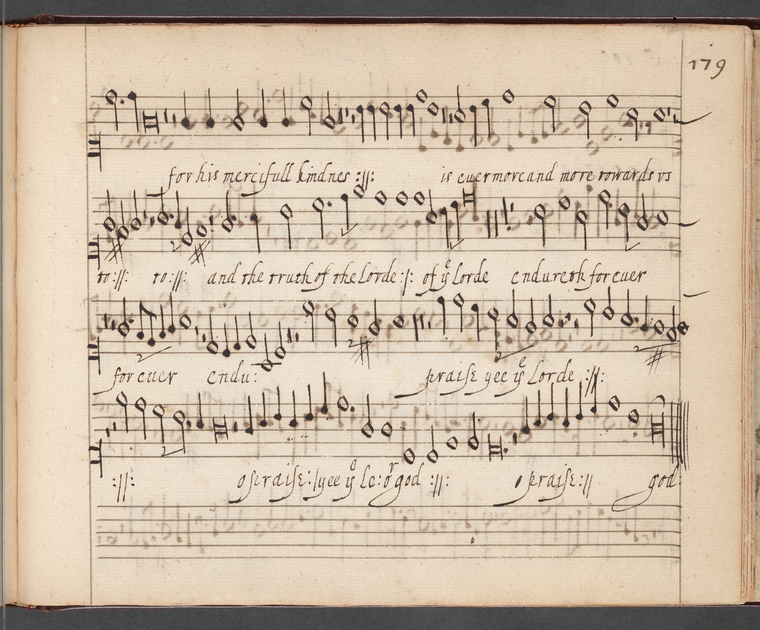 179
for his mercifull kindnes :||: is euermore and more towards vs
to :||: to :||: and the truth of the Lorde :|: of yͤ lorde endureth for euer
for euer endu: praise yee yͤ Lorde :||:
:||: o praise :|yee yͤ Lo: oʳ god :||: o praise :|| god